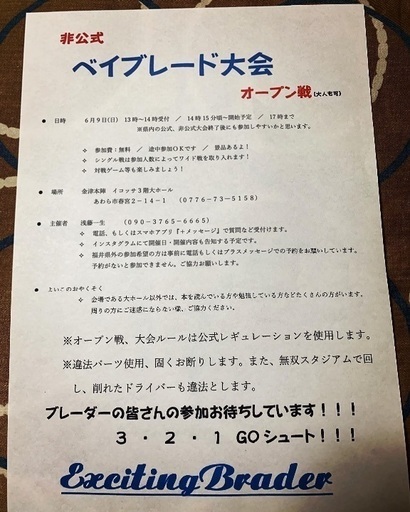 非公式
ベイブレード大会
オープン戦(大人も可)
● 日時 6月9日(日) 13時~14時受付 / 14時15分頃~開始予定 / 17時まで
※県内の公式、非公式大会終了後にも参加しやすいかと思います。
❖ 参加費:無料 / 途中参加OKです / 景品あるよ!
❖ シングル戦は参加人数によってワイド戦を取り入れます!
❖ 対戦ゲーム等も楽しみましょう!
● 場所 金津本陣 イコッサ3階大ホール
あわら市春宮2-14-1 (0776-73-5158)
● 主催者 浅藤一生 (090-3765-6665)
❖ 電話、もしくはスマホアプリ『+メッセージ』で質問など受付けます。
❖ インスタグラムにて開催日・開催内容も告知する予定です。
❖ 福井県外の参加希望の方は事前に電話もしくはプラスメッセージでの予約をお願いしています。
予約がないと参加できません。ご協力お願いします。
● よいこのおやくそく
❖ 会場である大ホール以外では、本を読んでいる方や勉強している方などたくさんの方がいます。
周りの方にご迷惑にならない様、ご協力ください。
※オープン戦、大会ルールは公式レギュレーションを使用します。
※違法パーツ使用、固くお断りします。また、無双スタジアムで回
し、削れたドライバーも違法とします。
ブレーダーの皆さんの参加お待ちしています!!!
3・2・1 GOシュート!!!
ExcitingBrader